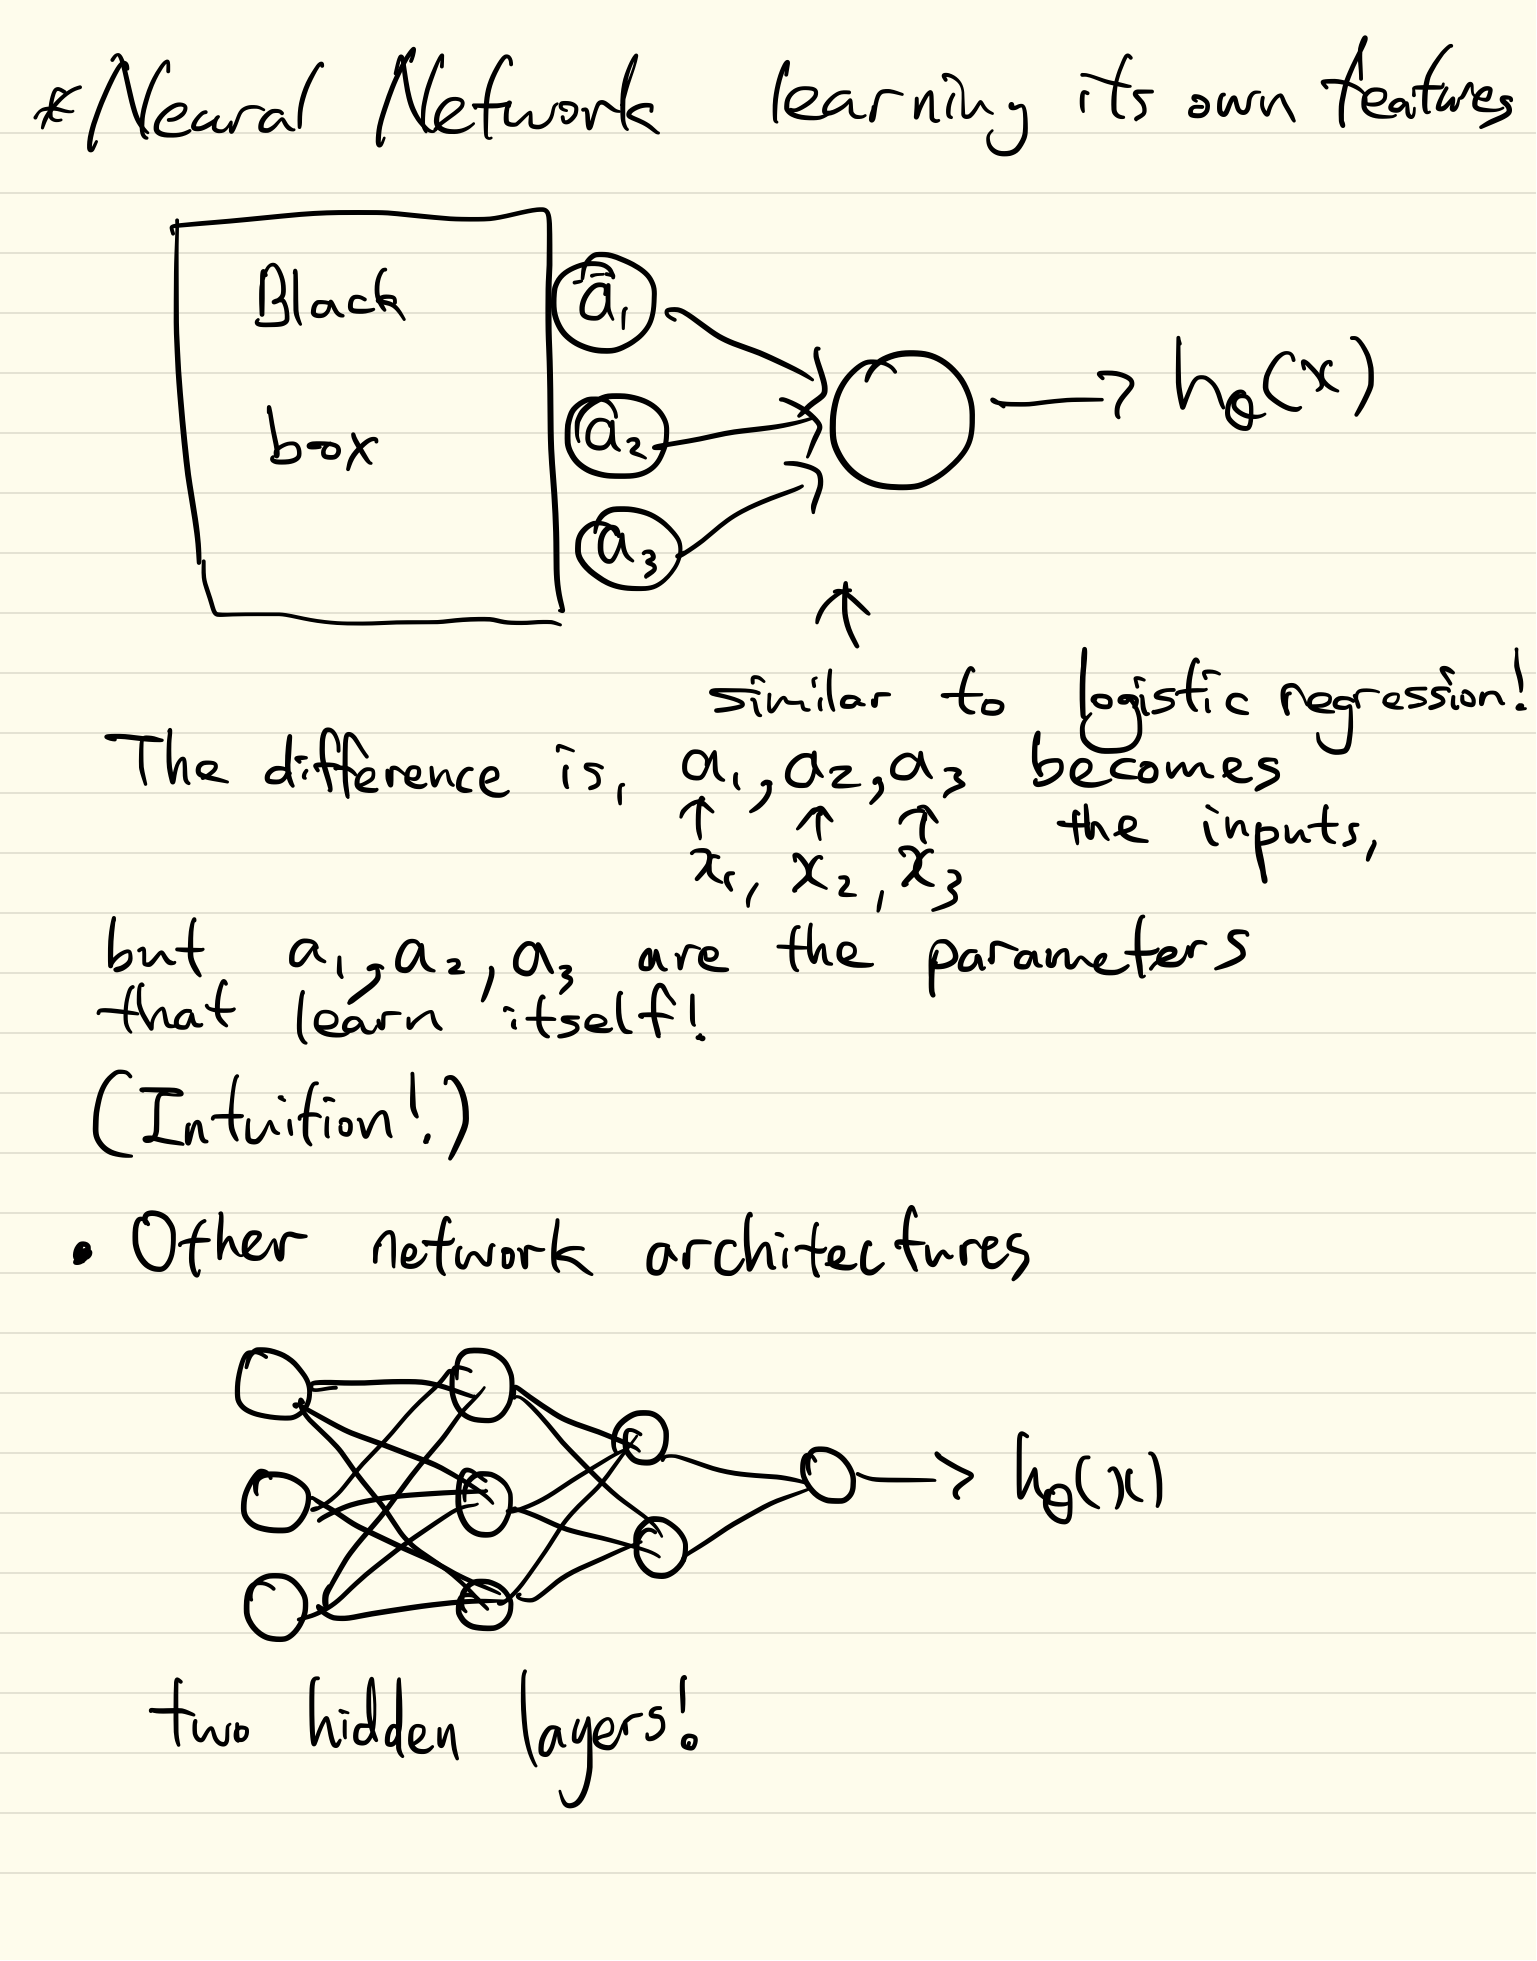 * Neural Network learning its own features
Black
box
a₁
a₂
a₃
hθ(x)
similar to logistic regression!
The difference is, a₁, a₂, a₃ becomes
the inputs,
↑ ↑ ↑
x₁, x₂, x₃
but a₁, a₂, a₃ are the parameters
that learn itself!
(Intuition!)
• Other network architectures
hθ(x)
two hidden layers!